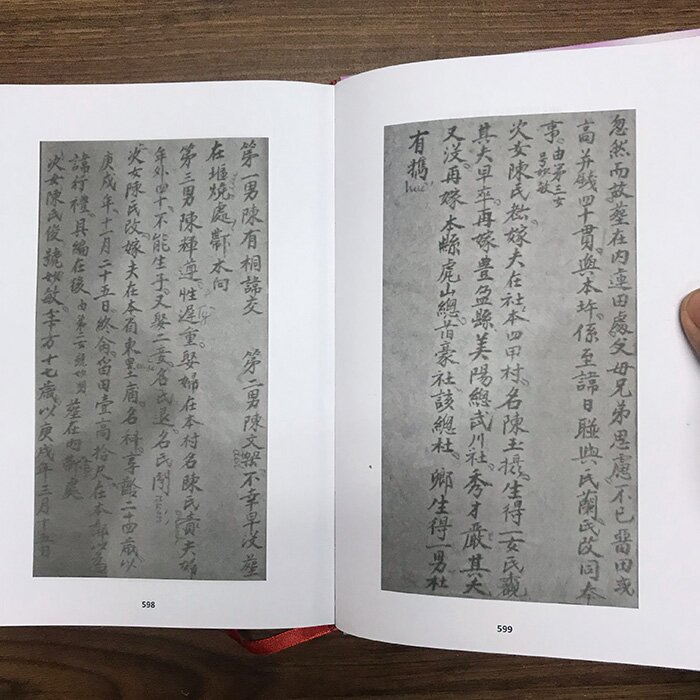 第一男陳有桐諱交 第二男陳文 不幸早没葬
在堰燒處鄰水向
第三男陳輝遵性遲重娶婦在本村名陳氏賣夫婦
年外四十不能生子又娶二妻名氏退名氏閉
次女陳氏改嫁夫在本省東 名科享齡二十四歲以
庚戌年十一月二十五日終 留田壹高拾尺在本 以為
諱行禮具編在後由第二女號妙明 葬在内 處
次女陳氏俊號妙敏年方十七歲以庚戌年三月十五日
598
忽然而故葬在内連田處父母兄弟思慮不已留田或
高并錢四十貫與本 係至諱日 與氏蘭氏改同奉
事由第三女号妙敏
次女陳氏松嫁夫在社本四甲村名陳玉摄生得二女氏觀
其夫早卒再嫁豊盈縣美陽總武川社秀才嚴其夫
又没再嫁本縣虎山總首豪社該總杜鄉生得一男杜
有
599